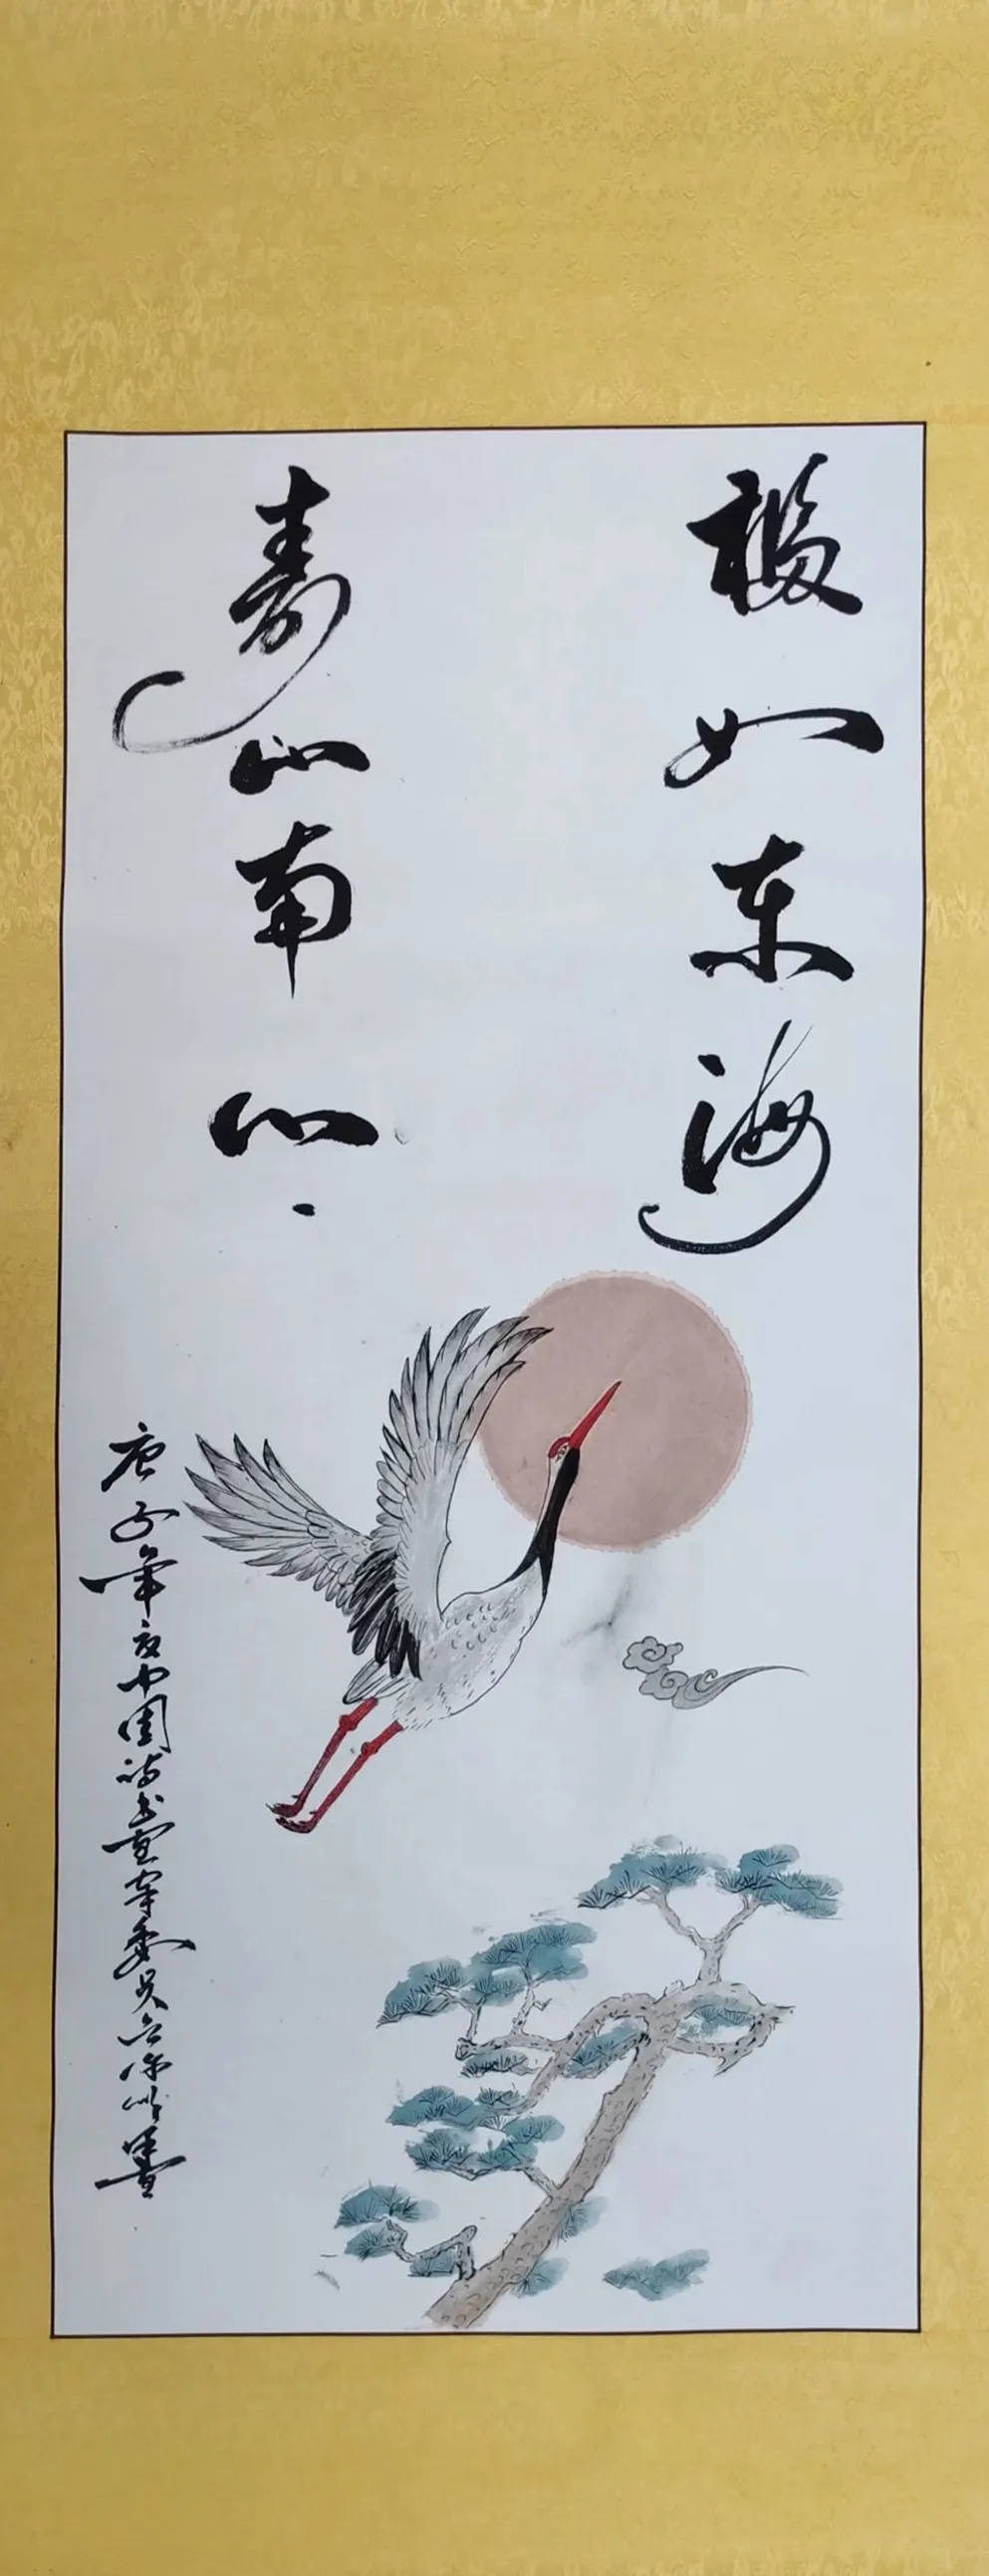 福如东海
寿比南山
庚子年夏中国诗书画家委员